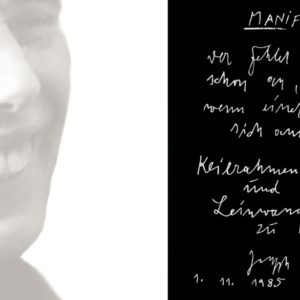 MANIF
der Fehler
schon an,
wenn einer
sich an
Keilrahmen
und
Leinwand
zu
Joseph
1. 11. 1985